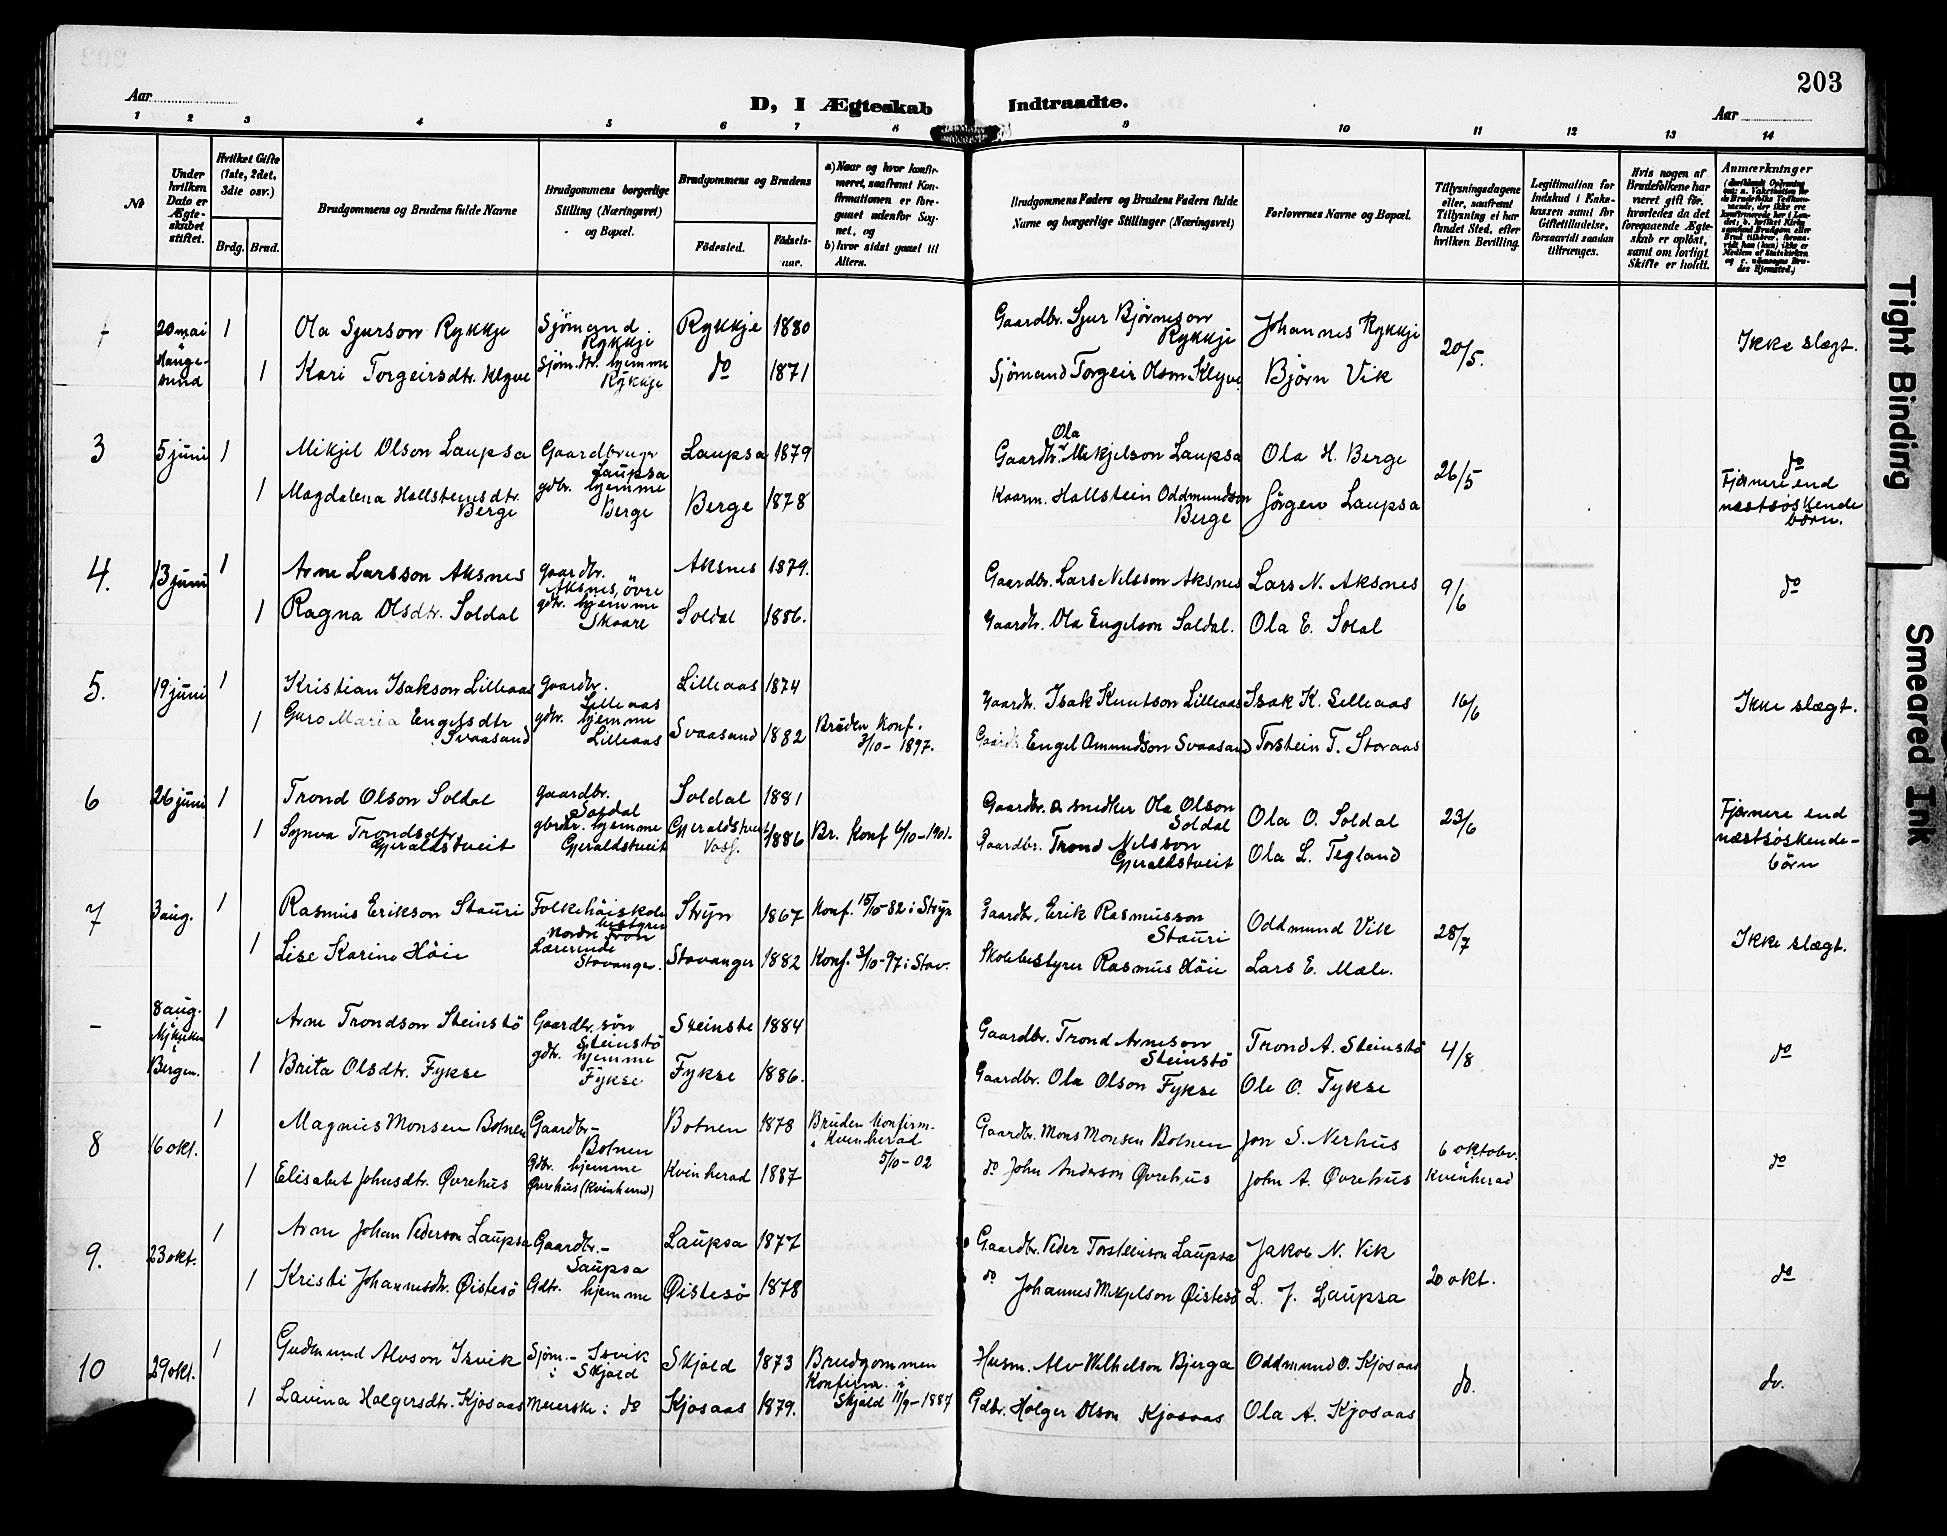 203
Aar
D, I Ægteskab Indtraadte.
Aar
1 2 3 4 5 6 7 8 9 10 11 12 13 14
No
Under hvilken Dato er Ægteskabet stiftet.
Hvilket Gifte (1ste, 2det, 3die osv.)
Brdg. Brud.
Brudgommens og Brudens fulde Navne
Brudgommens borgerlige Stilling (Næringsvei) og Bopæl.
Brudgommens og Brudens
Födested. Födselsaar.
a) Naar og hvor konfirmeret, saafremt Konfirmationen er foregaaet udenfor Sognet, og
b) hvor sidst gaaet til Alters.
Brudgommens Faders og Brudens Faders fulde Navne og borgerlige Stillinger (Næringsvei)
Forlovernes Navne og Bopæl.
Tillysningsdagene eller, saafremt Tillysning ei har fundet Sted, efter hvilken Bevilling.
Legitimation for Indskud i Enkekassen samt for Giftetilladelse, forsaavidt saadan tiltrænges.
Hvis nogen af Brudefolkene har været gift för, hvorledes da det foregaaende Ægteskab er oplöst, samt om lovligt Skifte er holdt.
Anmærkninger
20 mai Haugesund 1 Ola Sjurson Rykkje Sjömand. Rykkje Rykkje 1880 Gaardbr. Sjur Björneson Rykkje Johannes Rykkje 20/5. Ikke slægt.
1 Kari Torgeirsdtr. Klyve Sjöm.dtr. hjemme Rykkje do 1871 Sjömand Torgeir Olson Klyve Björn Vik
3 5 juni 1 Mikjel Olson Laupsa Gaardbruger Laupsa Laupsa 1879 Gaardbr. Ola Mikjelson Laupsa Ola H. Berge 26/5 do Fjærnere end næstsöskendebörn.
1 Magdalena Hallsteinsdtr. Berge gdbr. hjemme Berge Berge 1878 Kaarm. Hallstein Oddmundson Berge Jörgen Laupsa
4. 13 juni 1 Arne Larsson Aksnes gaardbr. Aksnes, övre Aksnes 1879. Gaardbr. Lars Nilsson Aksnes Lars N. Aksnes 9/6 do
1 Ragna Olsdtr. Soldal gdtr. hjemme Skaare Soldal 1886. Gaardbr. Ola Engelson Soldal. Ola E. Soldal
5. 19 juni 1 Kristian Isakson Lilleaas gaardbr. Lilleaas Lilleaas 1874 Gaardbr. Isak Knutson Lilleaas Isak K. Lilleaas 16/6 Ikke slægt.
1 Guro Maria Engelsdtr Svaasand gdtr. hjemme Lilleaas Svaasand 1882 Bruden Konf. 3/10-1897. Gaardbr. Engel Amundson Svaasand Torstein T. Storaas
6 26 juni 1 Trond Olson Soldal gaardbr. Soldal Soldal 1881 Gaardbr. & snedker Ola Olson Soldal Ola O. Soldal 23/6 Fjærnere end næstsöskendebörn
1 Synva Trondsdtr. Gjeraldstveit gbrdtr. hjemme Gjeraldstveit Gjeraldstveit, Voss. 1886 Br. Konf 6/10-1901. Gaardbr. Trond Nilsson Gjeraldstveit Ola L. Tegland
7 3 aug. 1 Rasmus Erikson Stauri Folkehöiskolebestyrer Nordre Tron Stryn 1867 Konf. 15/10-82 i Stryn Gaardbr, Erik Rasmusson Stauri Oddmund Vik 28/7 Ikke slægt.
1 Lise Karine Höie Lærerinde Stavanger. Stavanger 1882 Konf. 3/10-97 i Stav. Skolebestyrer Rasmus Höie Lars E. Mæle.
- 8 aug. Nykirken i Bergen. 1 Arne Trondson Steinstö Gaardbr. sön Steinstö Steinstö 1884 Gaardbr. Trond Arneson Steinstö Trond A. Steinstö 4/8 do
1 Brita Olsdtr. Fykse gdtr. hjemme Fykse Fykse 1886. Gaardbr. Ola Olson Fykse Ole O. Fykse
8 16 okt. 1 Magnus Monsen Botnen Gaardbr- Botnen Botnen 1878 Bruden Konfirm. i Kvinherad 5/10-02 Gaardbr. Mons Monsen Botnen Jon S. Nerhus 6 oktobr. i Kvinherad do
1 Elisabet Johnsdtr. Øvrehus Gdbr. hjemme Øvrehus (Kvinherad) Kvinherad 1887 do John Anderson Øvrehus John A. Øvrehus
9. 23 okt. 1 Arne Johan Pederson Laupsa Gaardbr.- Laupsa Laupsa 1877 Gaardbr. Peder Torsteinson Laupsa Jakob N. Vik 20 okt. do
1 Kristi Johannesdtr. Øistesö Gdtr. hjemme Øistesö 1878 do Johannes Mikjelson Øistesö L. J. Laupsa
10 29 okt. 1 Gudmund Alvson Isvik Sjöm.- Isvik i Skjold Skjold 1873 Brudgommen Konfirm. i Skjold 11/9-1887 Husm. Alv Wilhelson Bjerga Oddmund O. Kjosaas do. do.
1 Lavina Holgersdtr. Kjosaas Meierske i do Kjosaas 1879. Gdbr. Holger Olson Kjosaas Ola A. Kjosaas
Tight Binding
Smeared Ink